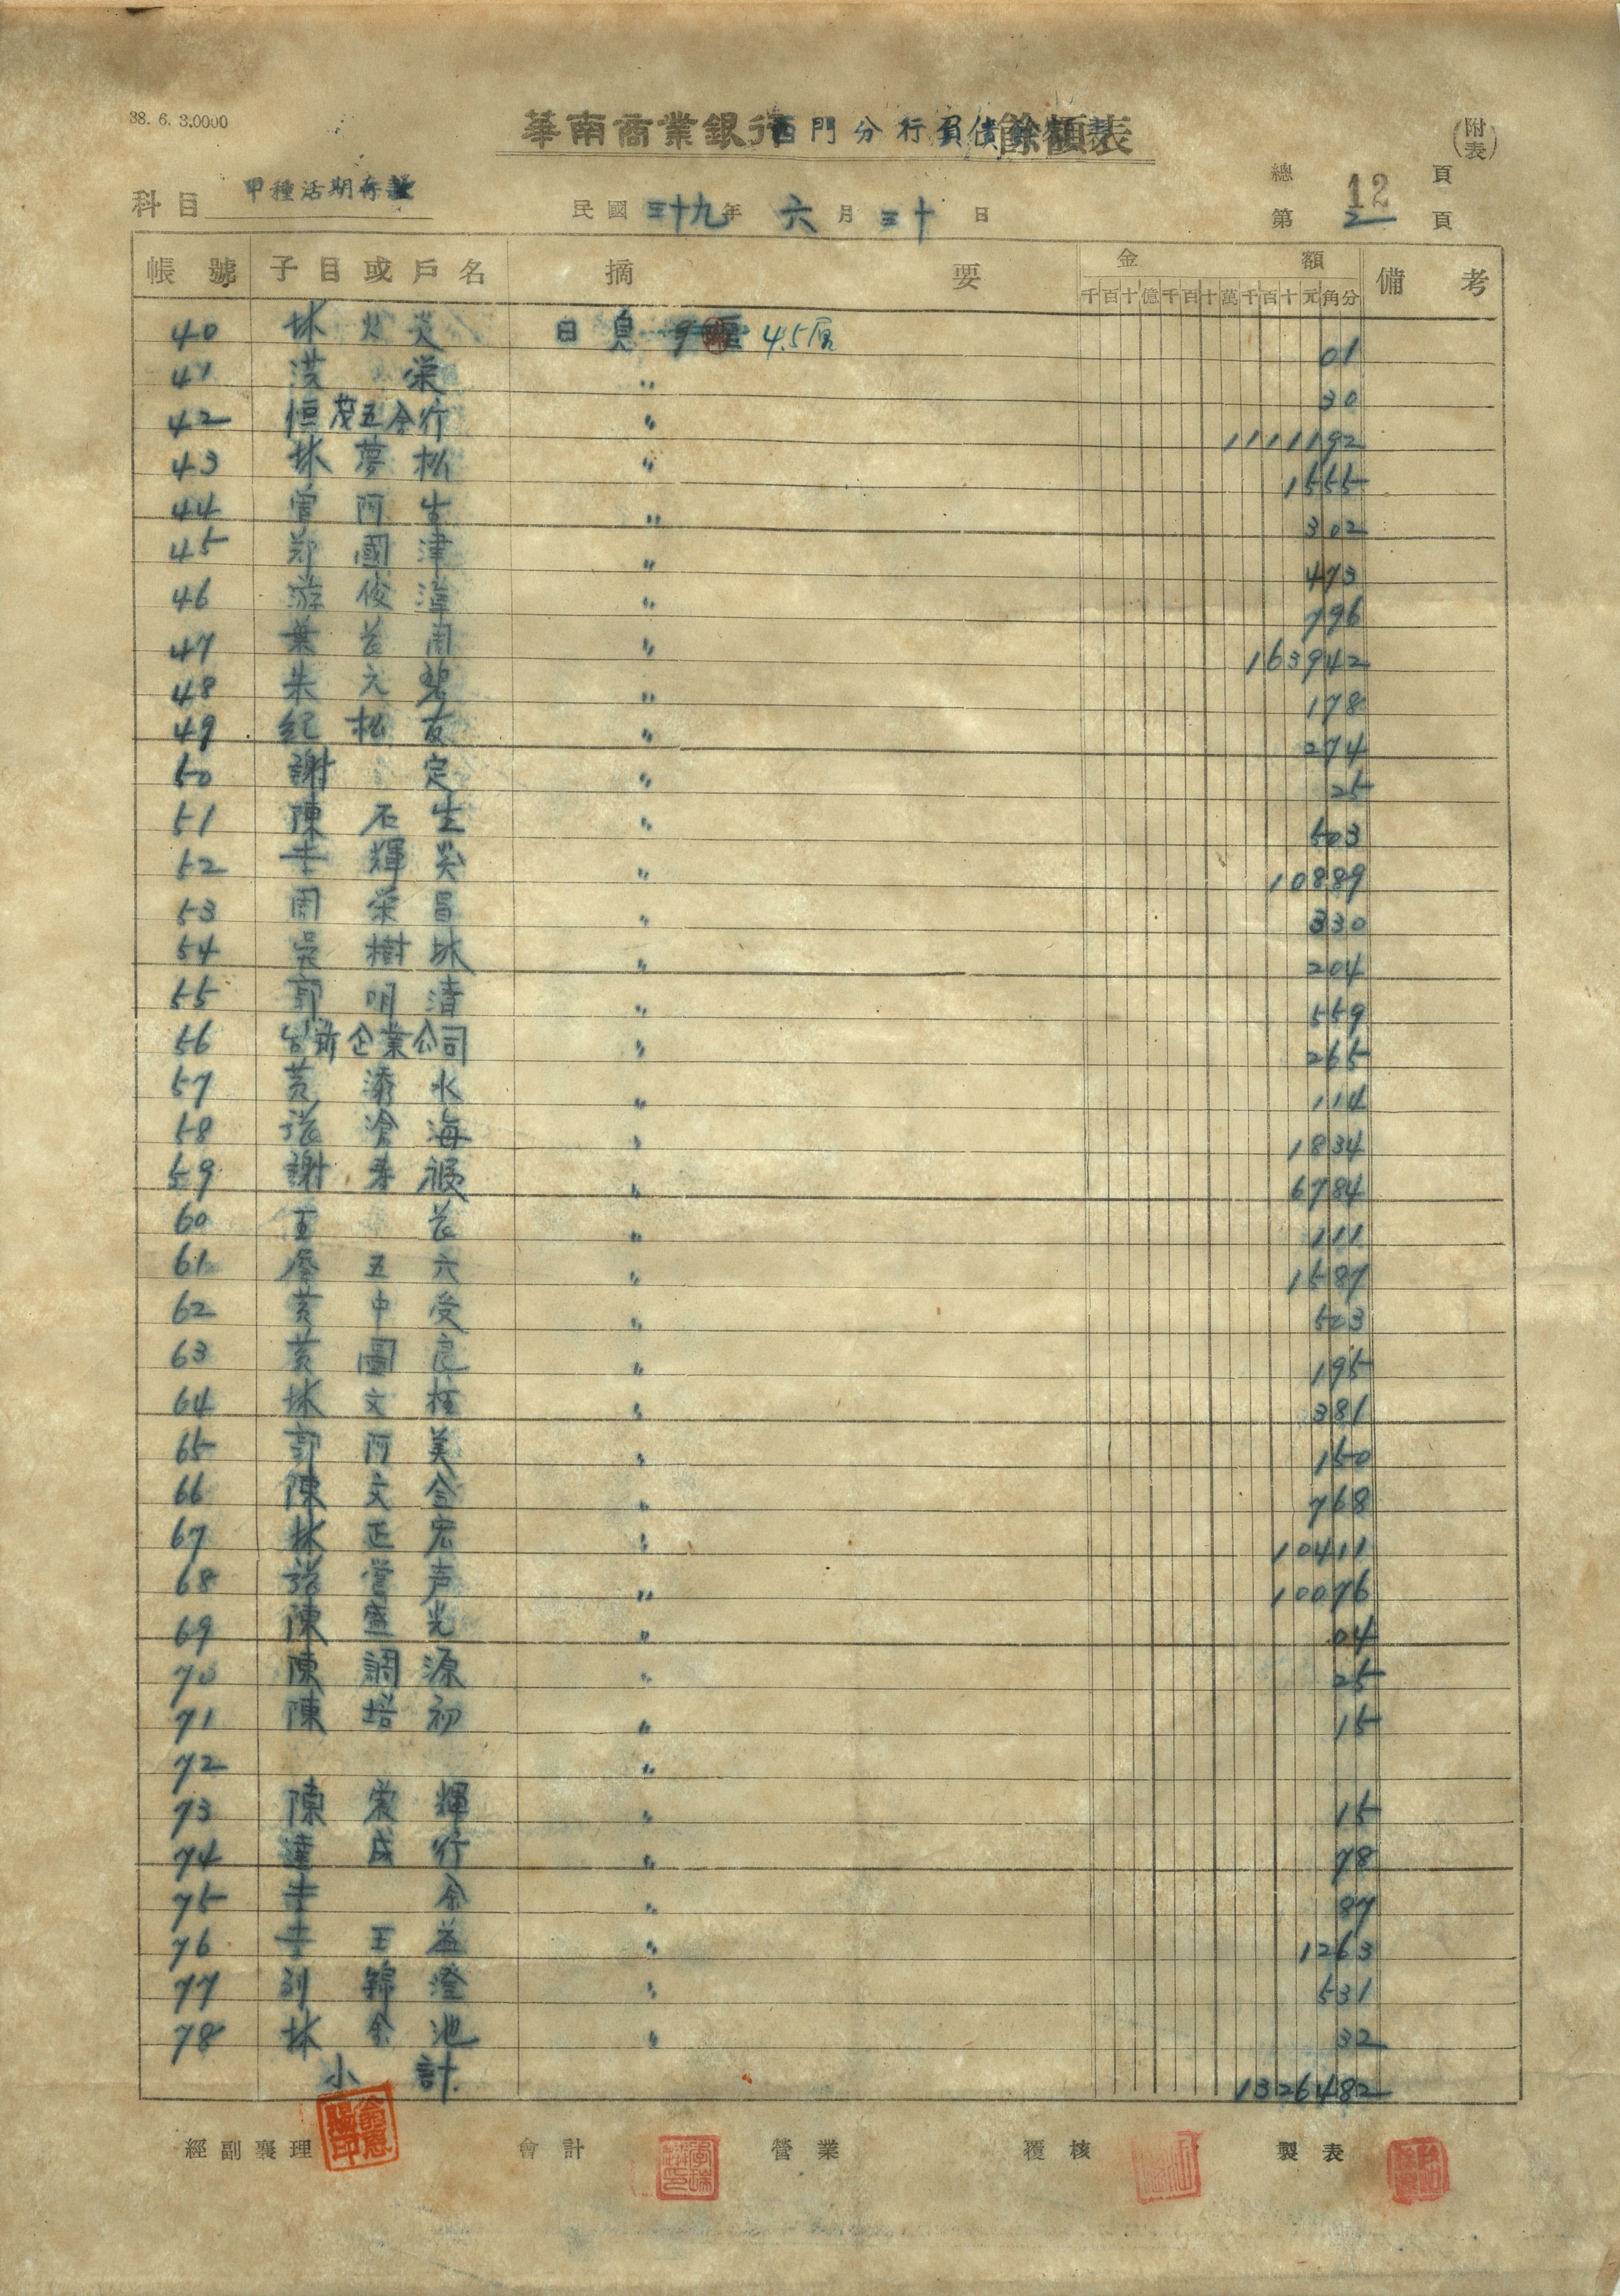 38. 6. 3.0000
華南商業銀行西門分行負債餘額表
(附表)
科目 甲種活期存款
民國 三十九年 六月 三十日
總 12 頁
第 2 頁
帳號 子目或戶名 摘要 金額 備考
千百十億千百十萬千百十元角分
40 林火炎 日息 4.5厘 01
41 洪榮 〃 30
42 恒茂五金行 〃 1111192
43 林夢松 〃 1555
44 曾阿生 〃 302
45 郑國津 〃 473
46 游俊漳 〃 796
47 葉 〃 163942
48 朱元 〃 178
49 紀松友 〃 274
50 謝定 〃 25
51 陳石生 〃 503
52 李輝 〃 10889
53 周榮昌 〃 330
54 吳樹林 〃 204
55 郭明清 〃 559
56 台新企業公司 〃 265
57 黃水 〃 114
58 張滄海 〃 1834
59 謝 〃 6784
60 王 〃 111
61 廖五六 〃 1587
62 黃中受 〃 503
63 黃圖良 〃 195
64 林文柱 〃 381
65 郭阿美 〃 150
66 陳文金 〃 768
67 林正宏 〃 10411
68 張声 〃 10076
69 陳盛光 〃 04
70 陳調源 〃 25
71 陳培初 〃 15
72 〃
73 陳榮輝 〃 15
74 達成行 〃 78
75 李余 〃 87
76 李王益 〃 1263
77 刘錦澄 〃 531
78 林金池 〃 32
小計 1326482
經副襄理 會計 營業 覆核 製表